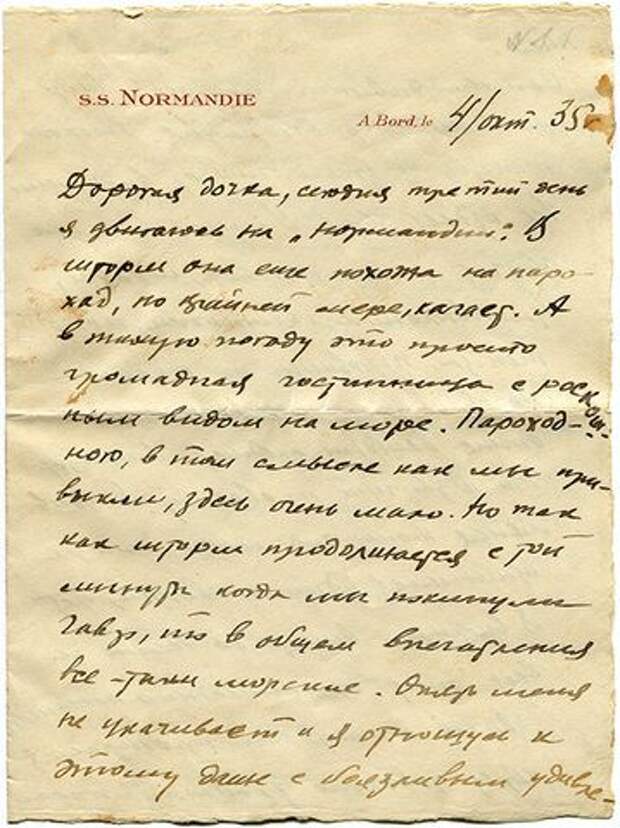 S.S. NORMANDIE
A Bord, le 4/окт. 35
Дорогая дочка, сегодня третий день
я двигаюсь на „Нормандии". В
шторм она еще похожа на паро-
ход, по крайней мере, качает. А
в тихую погоду это просто
громадная гостинница с роскош-
ным видом на море. Пароход-
ного, в том смысле как мы при-
выкли, здесь очень мало. Но так
как шторм продолжается с той
минуты когда мы покинули
Гавр, то в общем впечатления
все-таки морские. Опять меня
не укачивает и я отношусь к
этому даже с боязливым удивле-